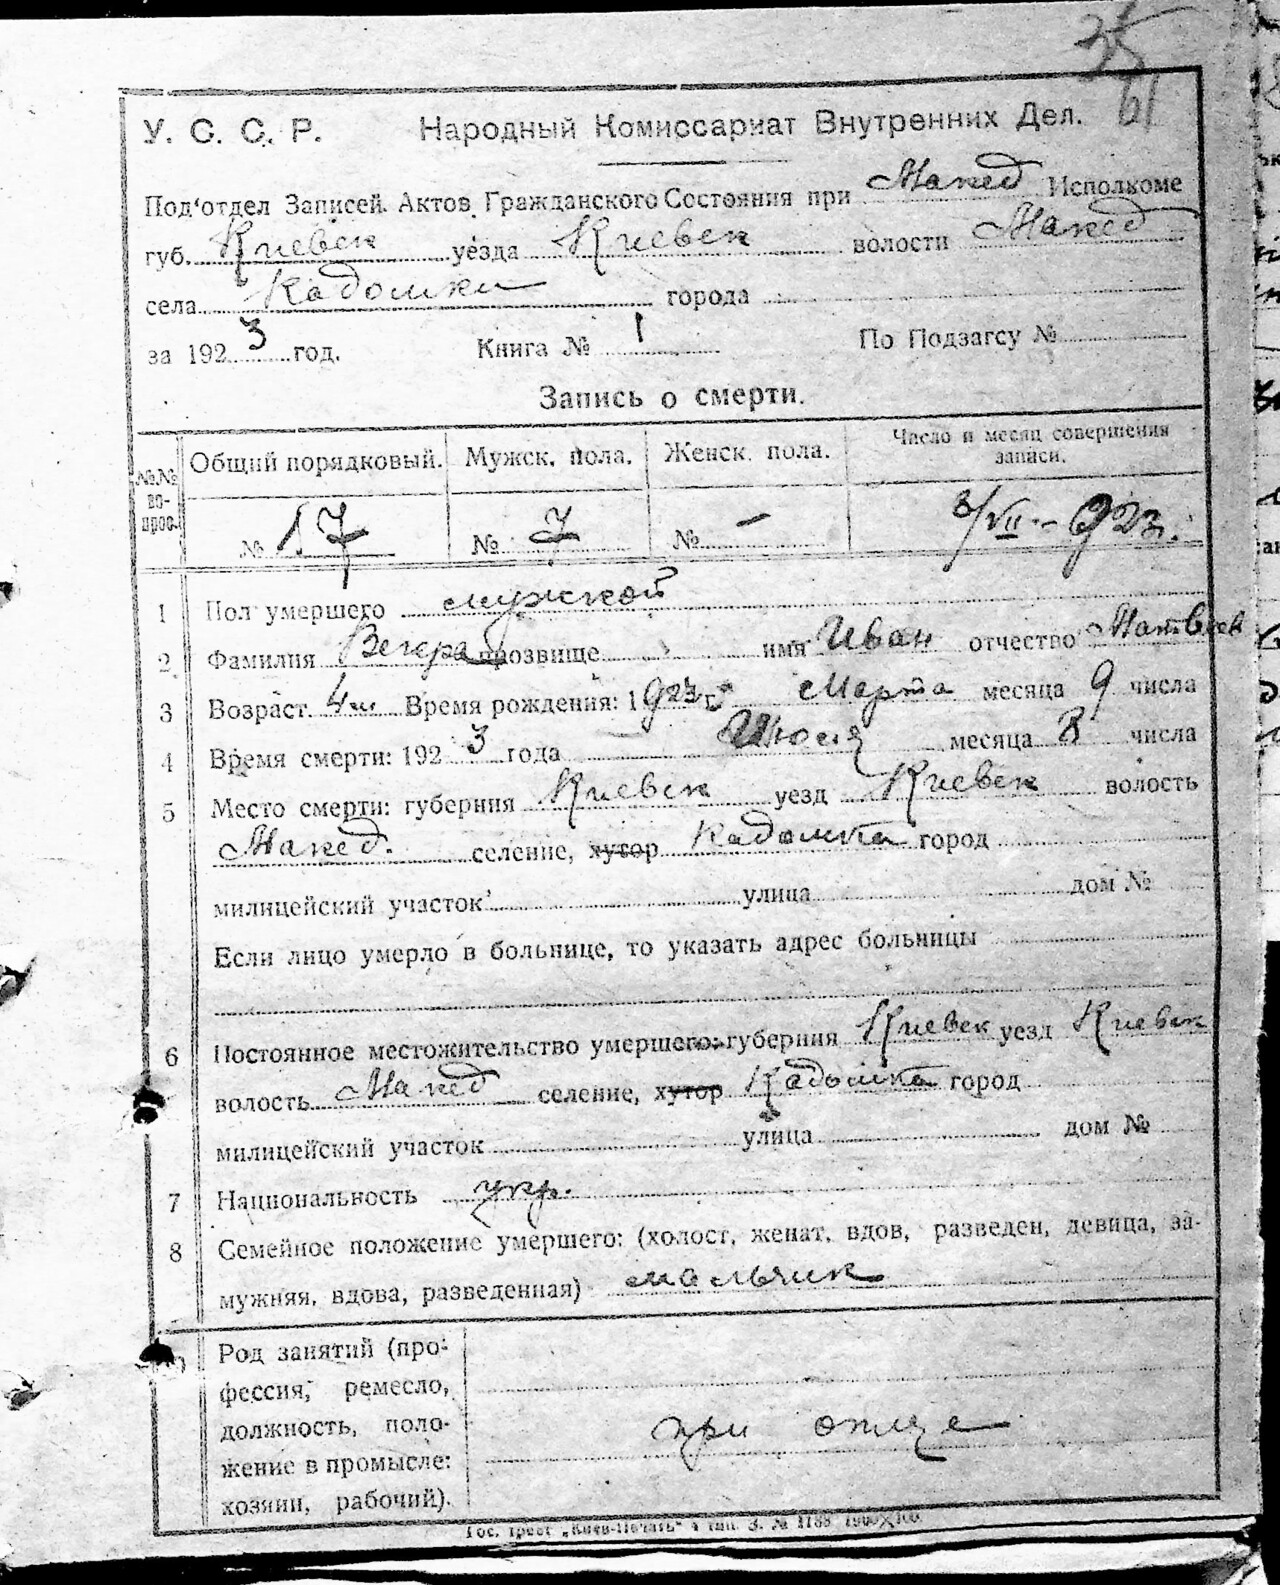 35
61
У. С. С. Р. Народный Комиссариат Внутренних Дел.
Под'отдел Записей Актов Гражданского Состояния при Макед Исполкоме
губ. Киевск уезда Киевск волости Макед
села Кадомки города
за 1923 год. Книга № 1 По Подзагсу №
Запись о смерти.
№№ во- прос. Общий порядковый. Мужск. пола. Женск. пола. Число и месяц совершения записи.
№ 17 № 7 № - 8/VII - 923г.
1 Пол умершего мужской
2 Фамилия прозвище имя Иван отчество Матвеев
3 Возраст 4 м Время рождения: 1923 г Марта месяца 9 числа
4 Время смерти: 1923 года Июля месяца 8 числа
5 Место смерти: губерния Киевск уезд Киевск волость
Макед. селение, хутор Кадомка город
милицейский участок улица дом №
Если лицо умерло в больнице, то указать адрес больницы
6 Постоянное местожительство умершего: губерния Киевск уезд Киевск
волость Макед селение, хутор Кадомка город
милицейский участок улица дом №
7 Национальность укр.
8 Семейное положение умершего: (холост, женат, вдов, разведен, девица, за-
мужняя, вдова, разведенная) мальчик
Род занятий (про-
фессия, ремесло,
должность, поло-
жение в промысле:
хозяин, рабочий).
при отце
Гос. трест „Киев-Печать" 4 тип. З. № 1188